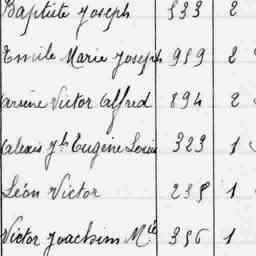 Baptiste Joseph 533 2
Emile Marie Joseph 959 2
Arsène Victor Alfred 894 2
Alexis Jh Eugène Louis 323 1
Léon Victor 1
Victor Joachim Mie 356 1